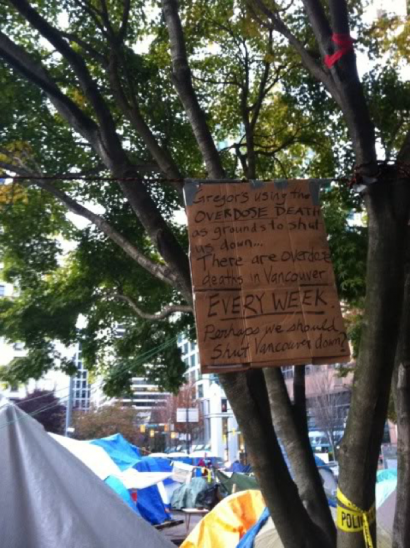 Gregor's using the
OVERDOSE DEATH
as grounds to shut
us down...
There are overdose
deaths in Vancouver
EVERY WEEK.
Perhaps we should
Shut Vancouver down?
POLI